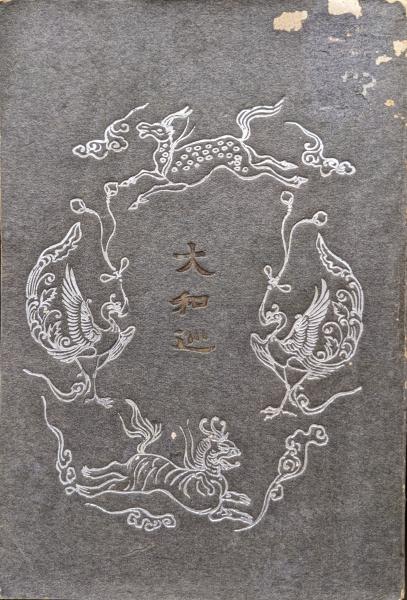 大和巡